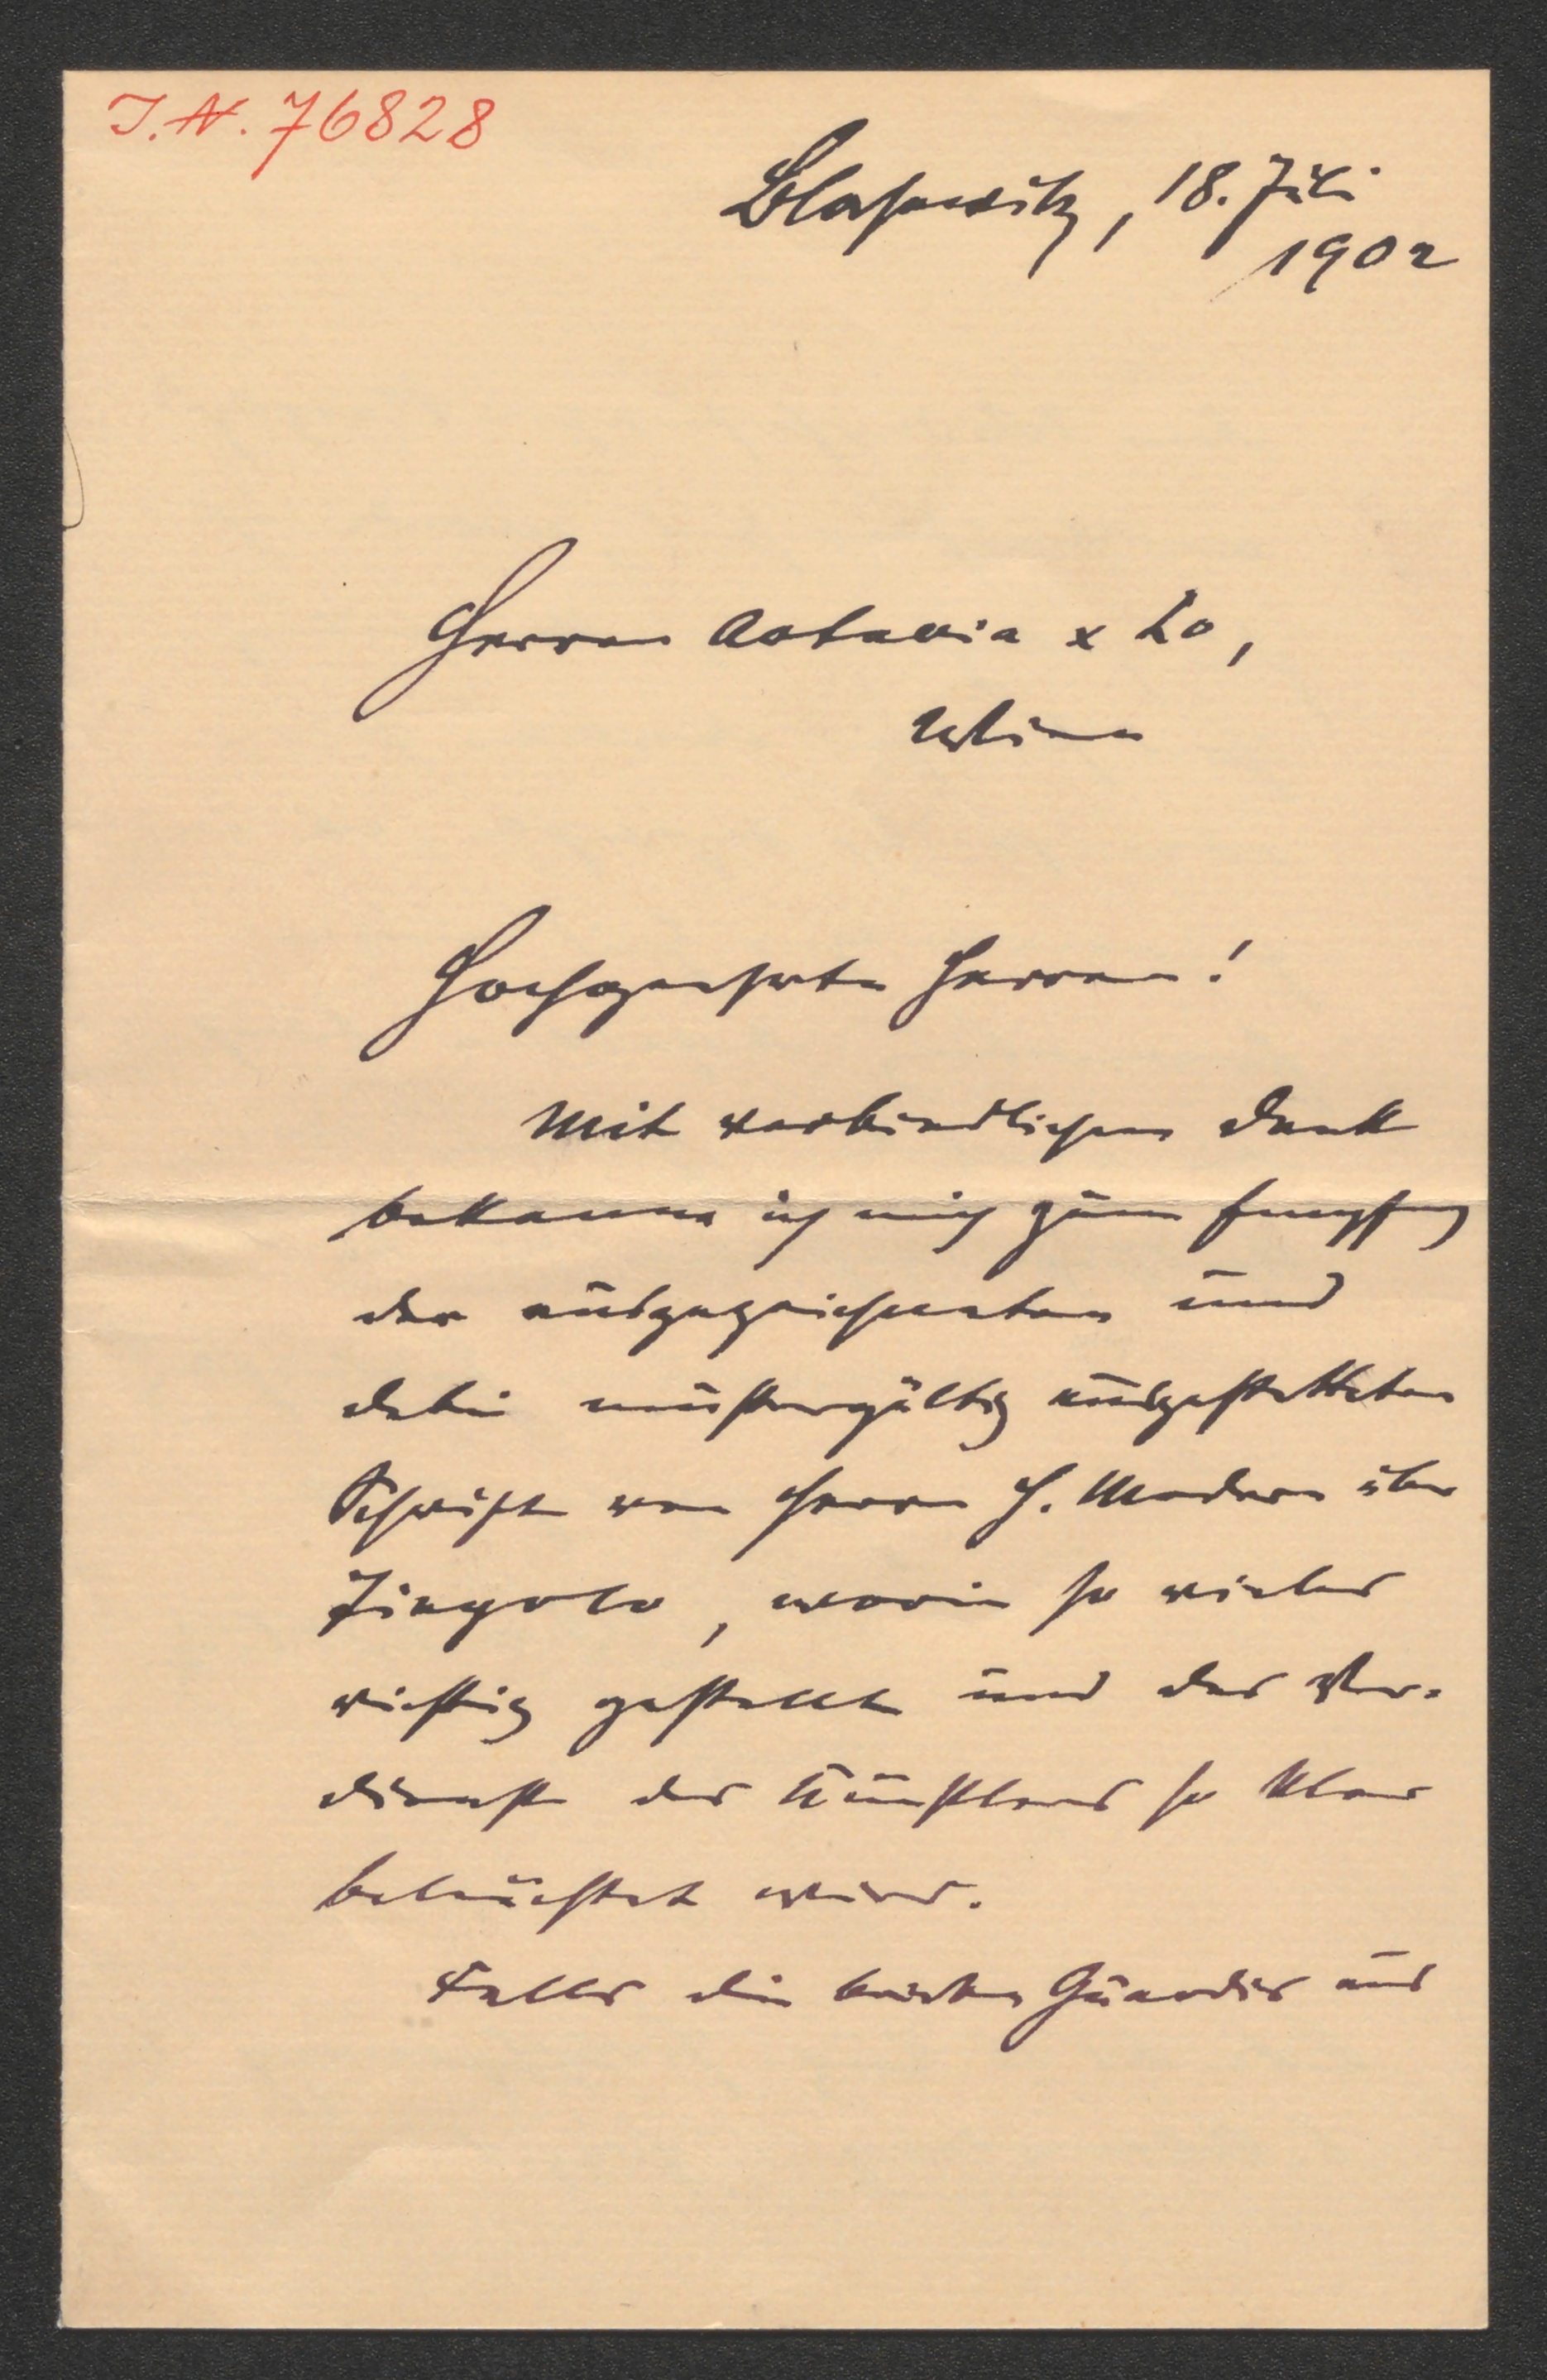 I.N. 76828
Blasewitz, 18. Juli
1902
Herren Artaria & Co,
Wien
Hochgeehrte Herren!
Mit verbindlichem Dank
bekenne ich mich zum Empfang
der ausgezeichneten und
dabei mustergültig ausgestatteten
Schrift von Herrn H. Modern über
Tiepolo, worin so vieles
richtig gestellt und das Ver-
dienst des Künstlers so klar
beleuchtet wird.
Falls die beiden Guardis aus